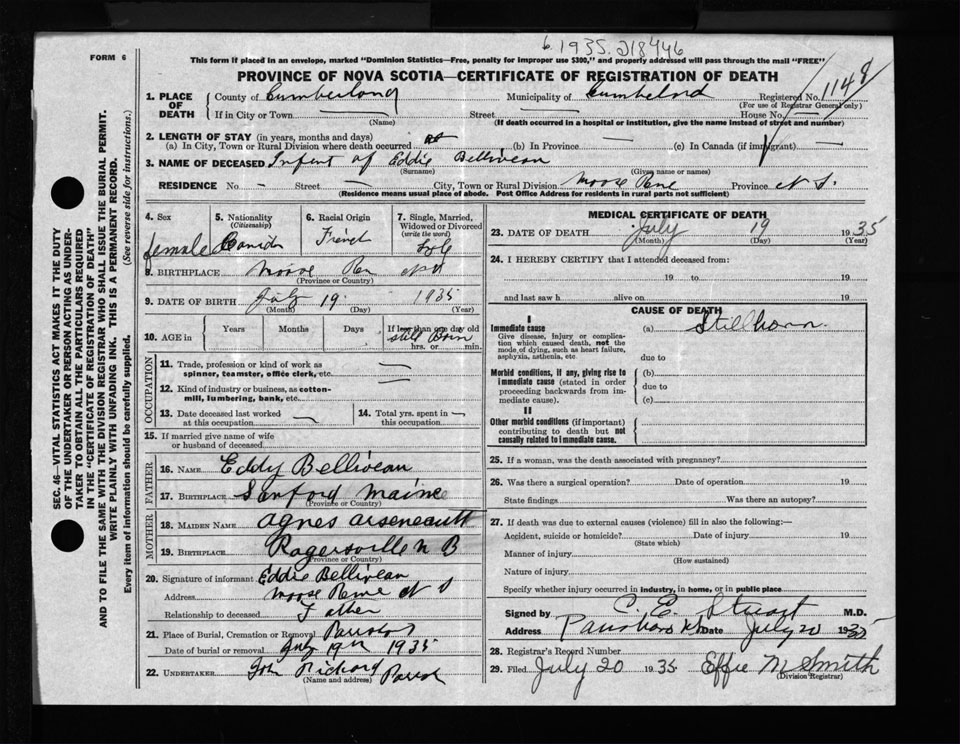 6.1935.218446
FORM 6
This form if placed in an envelope, marked "Dominion Statistics—Free, penalty for improper use $300," and properly addressed will pass through the mail "FREE"
PROVINCE OF NOVA SCOTIA—CERTIFICATE OF REGISTRATION OF DEATH
1148
1. PLACE OF DEATH
County of Cumberland Municipality of Cumbelnd Registered No.
(For use of Registrar General only)
If in City or Town — (Name) Street — House No. —
(If death occurred in a hospital or institution, give the name instead of street and number)
2. LENGTH OF STAY (in years, months and days)
(a) In City, Town or Rural Division where death occurred (b) In Province — (c) In Canada (if immigrant) —
3. NAME OF DECEASED Infent of Eddie Belliveau
(Surname) (Given name or names)
RESIDENCE No. — Street — City, Town or Rural Division Moose Province N S.
(Residence means usual place of abode. Post Office Address for residents in rural parts not sufficient)
4. Sex female
5. Nationality (Citizenship)
6. Racial Origin French
7. Single, Married, Widowed or Divorced (write the word)
8. BIRTHPLACE Moose
(Province or Country)
9. DATE OF BIRTH July 19 1935
(Month) (Day) (Year)
10. AGE in Years Months Days If less than one day old still Born hrs. or min.
OCCUPATION
11. Trade, profession or kind of work as spinner, teamster, office clerk, etc. —
12. Kind of industry or business, as cotton-mill, lumbering, bank, etc. —
13. Date deceased last worked at this occupation —
14. Total yrs. spent in this occupation —
15. If married give name of wife or husband of deceased
FATHER
16. NAME Eddy Belliveau
17. BIRTHPLACE Sanford Maine
(Province or Country)
MOTHER
18. MAIDEN NAME agnes arseneault
19. BIRTHPLACE Rogersville N B
(Province or Country)
20. Signature of informant Eddie Belliveau
Address Moose N S
Relationship to deceased Father
21. Place of Burial, Cremation or Removal
Date of burial or removal July 19th 1935
22. UNDERTAKER John Richard
(Name and address)
MEDICAL CERTIFICATE OF DEATH
23. DATE OF DEATH July 19 1935
(Month) (Day) (Year)
24. I HEREBY CERTIFY that I attended deceased from:
19 to 19
and last saw h alive on 19
CAUSE OF DEATH
I
Immediate cause
Give disease, injury or complication which caused death, not the mode of dying, such as heart failure, asphyxia, asthenia, etc.
(a) Stillborn.
due to
Morbid conditions, if any, giving rise to immediate cause (stated in order proceeding backwards from immediate cause).
(b)
due to
(c)
II
Other morbid conditions (if important) contributing to death but not causally related to immediate cause.
25. If a woman, was the death associated with pregnancy?
26. Was there a surgical operation? Date of operation 19
State findings Was there an autopsy?
27. If death was due to external causes (violence) fill in also the following:—
Accident, suicide or homicide? Date of injury 19
(State which)
Manner of injury
(How sustained)
Nature of injury
Specify whether injury occurred in industry, in home, or in public place
Signed by C. E. Stuart M.D.
Address Parrsboro NS Date July 20 1935
28. Registrar's Record Number
29. Filed July 20 1935 Effie M Smith
(Division Registrar)
SEC. 46—VITAL STATISTICS ACT MAKES IT THE DUTY OF THE UNDERTAKER OR PERSON ACTING AS UNDERTAKER TO OBTAIN ALL THE PARTICULARS REQUIRED IN THE "CERTIFICATE OF REGISTRATION OF DEATH" AND TO FILE THE SAME WITH THE DIVISION REGISTRAR WHO SHALL ISSUE THE BURIAL PERMIT.
WRITE PLAINLY WITH UNFADING INK. THIS IS A PERMANENT RECORD.
Every item of information should be carefully supplied. (See reverse side for instructions.)